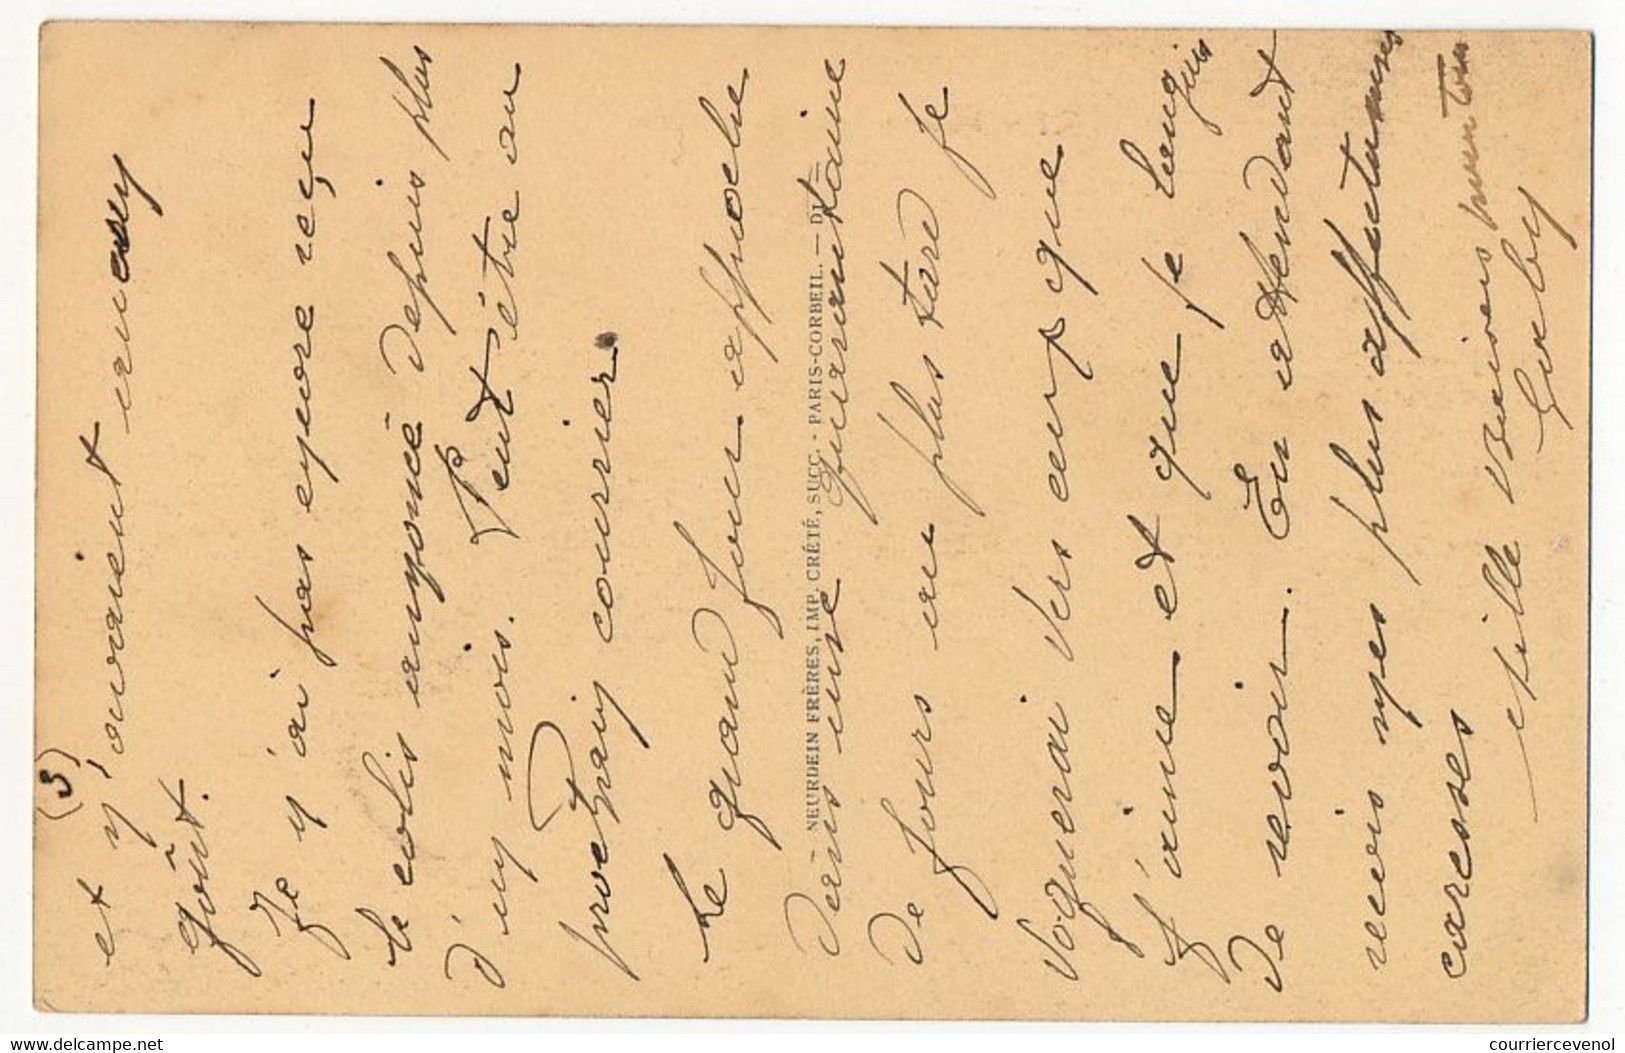 (3)
et n'avaient aucun
goût.
Je n'ai pas encore reçu
le colis annoncé depuis plus
d'un mois. Peut être au
prochain courrier.
Le grand jour approche
Dans une quarantaine
de jours au plus tard je
voguerai vers ceux que
j'aime et que je languis
de revoir. En attendant
recois mes plus affectueuses
caresses
mille baisers mon ton
Gaby
NEURDEIN FRÈRES, IMP. CRÉTÉ, SUCC. - PARIS-CORBEIL. - D
courriercevenol
delcampe.net